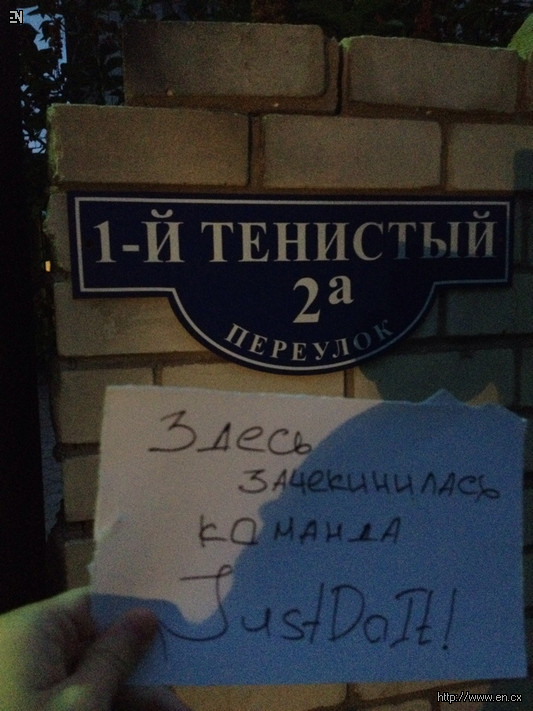 EN
1-Й ТЕНИСТЫЙ
2а
ПЕРЕУЛОК
Здесь
зачекинилась
команда
JustDoIt!
http://www.en.cx